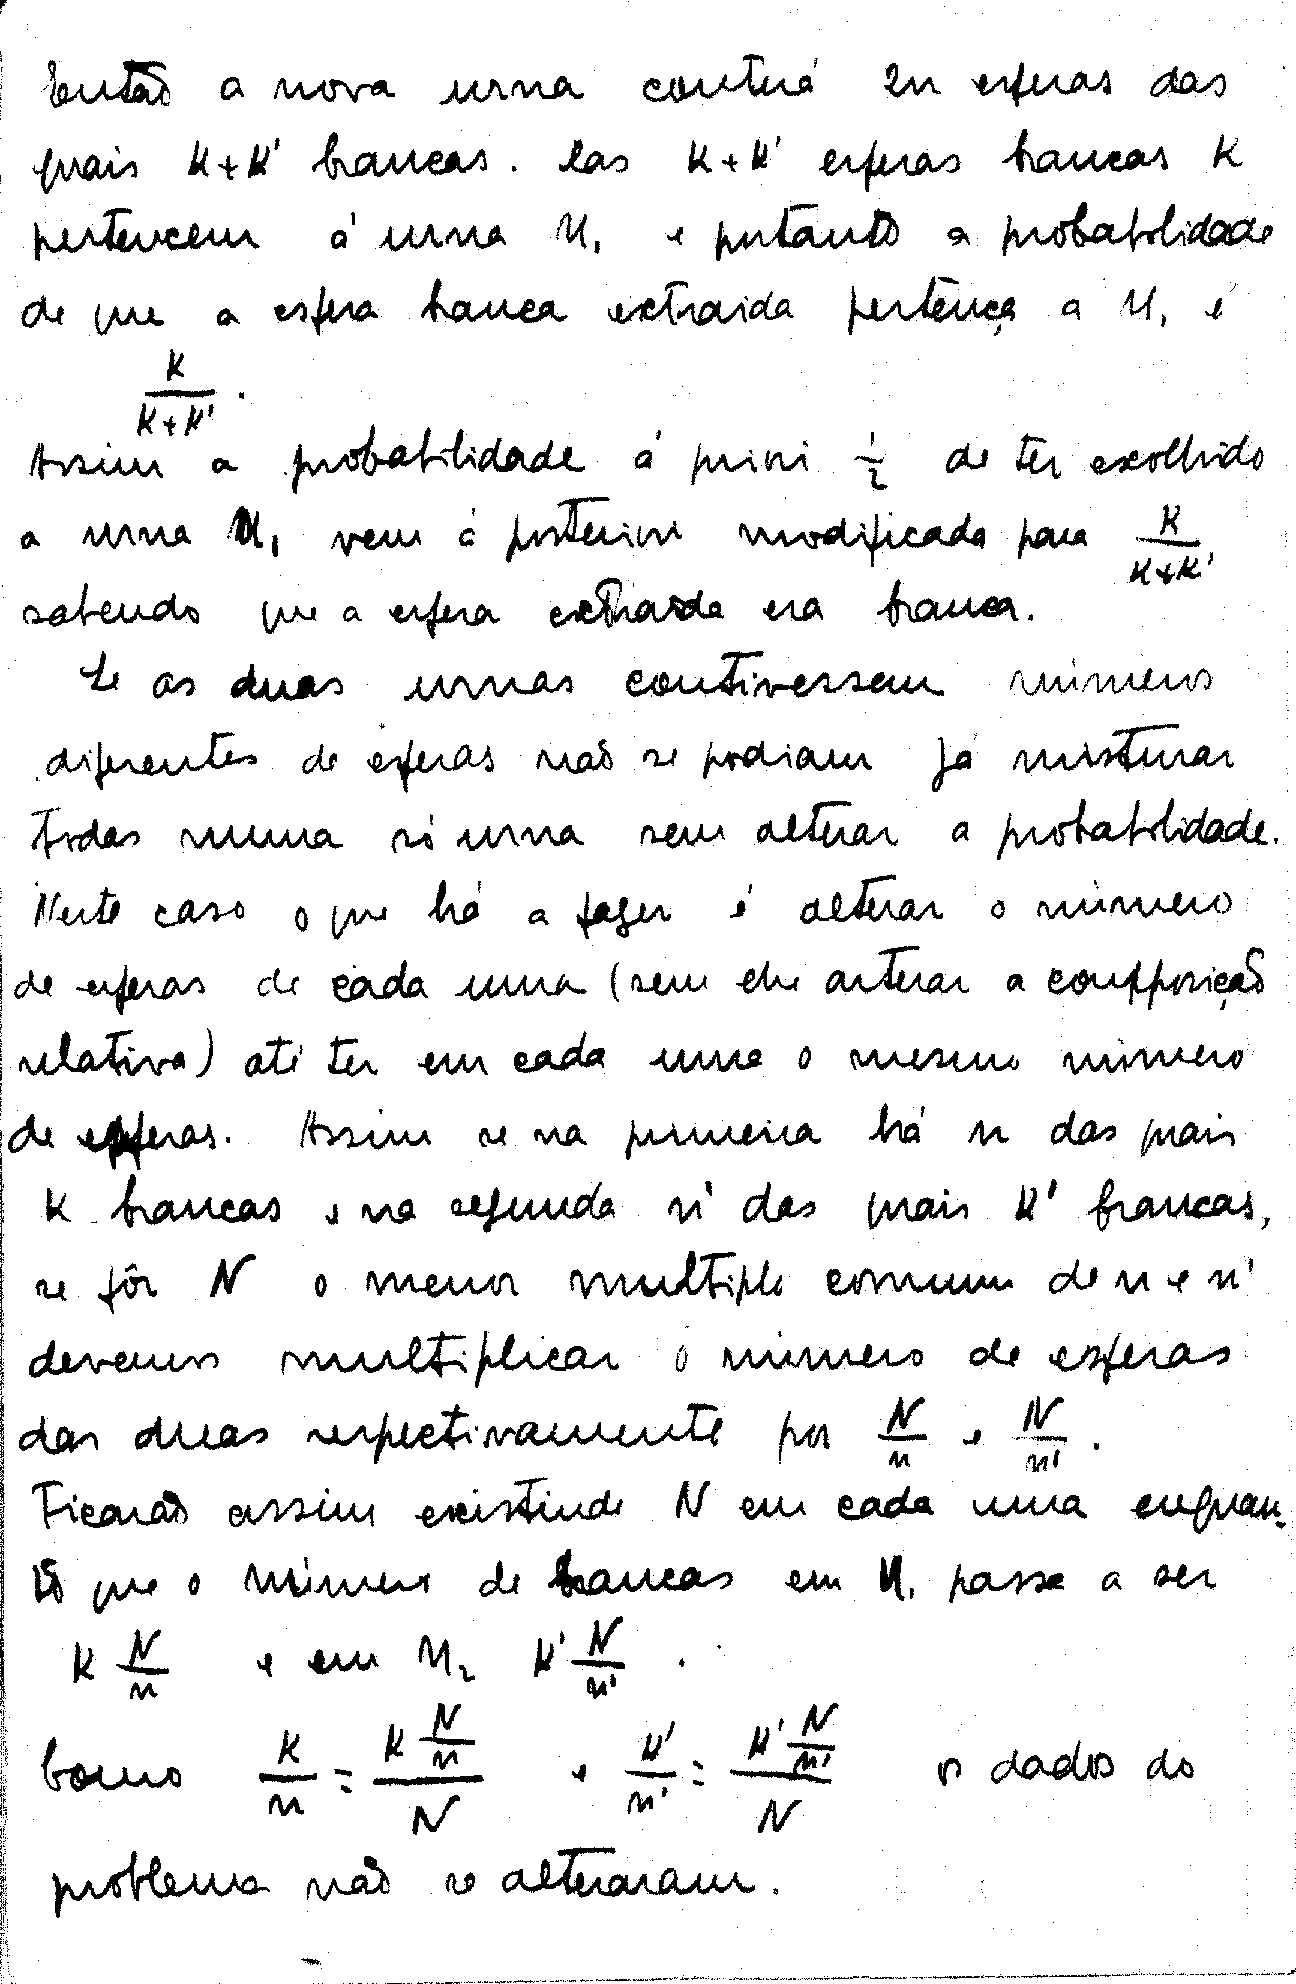 Então a nova urna conterá 2n esferas das
quais K+K' brancas. Das K+K' esferas brancas K
pertencem á urna U₁ e portanto a probabilidade
de que a esfera branca extraida pertença a U₁ é
K/(K+K').
Assim a probabilidade á priori 1/2 de ter escolhido
a urna U₁ vem á posteriori modificada para K/(K+K')
sabendo que a esfera extraida era branca.
Se as duas urnas contivessem números
diferentes de esferas não se podiam já misturar
todas numa só urna sem alterar a probabilidade.
Neste caso o que há a fazer é alterar o número
de esferas de cada urna (sem lhe alterar a composição
relativa) até ter em cada uma o mesmo número
de esferas. Assim se na primeira há n das quais
K brancas e na segunda n' das quais K' brancas,
se fôr N o menor multiplo comum de n e n'
devemos multiplicar o número de esferas
das duas respectivamente por N/n e N/n'.
Ficarão assim existindo N em cada uma enquan-
to que o número de brancas em U₁ passa a ser
K N/n e em U₂ K' N/n'.
Como K/n = (K N/n)/N e K'/n' = (K' N/n')/N os dados do
problema não se alteraram.